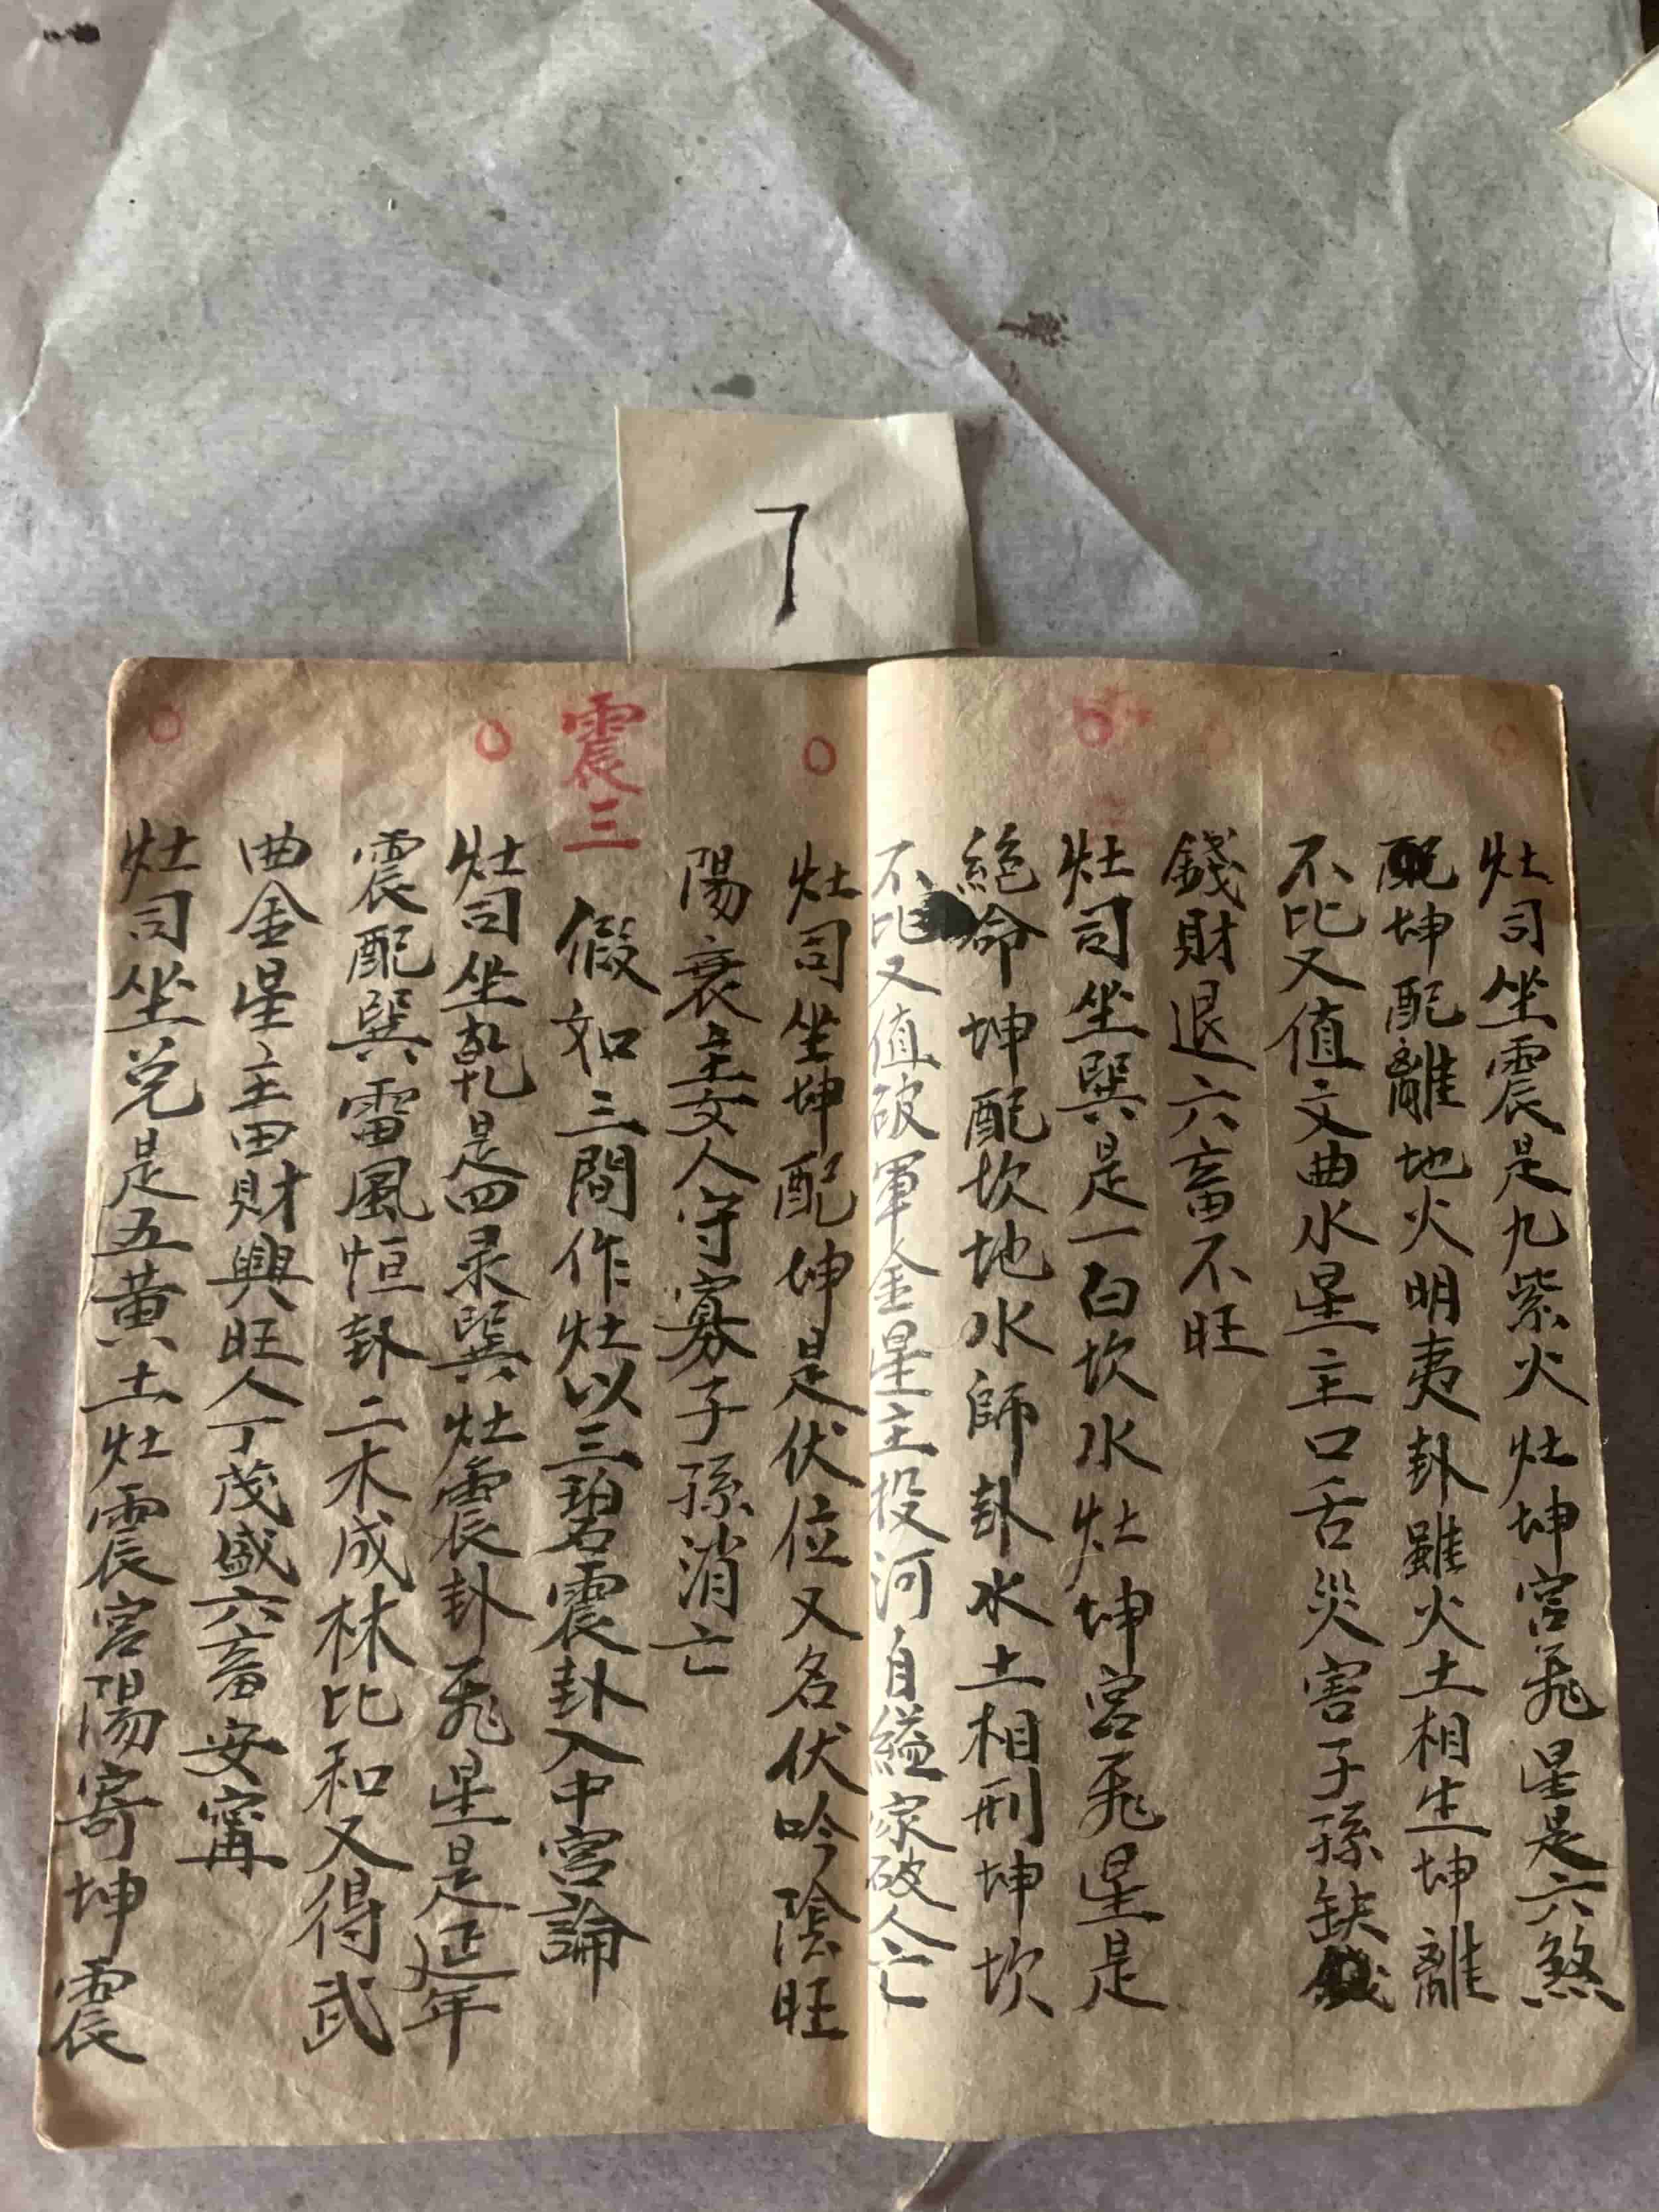 7
灶司坐震是九紫火灶坤宮飛星是六煞
配坤配離地火明夷卦雖火土相生坤離
不比又值文曲水星主口舌災害子孫缺
錢財退六畜不旺
灶司坐巽是一白坎水灶坤宮飛星是
絕命坤配坎地水師卦水土相刑坤坎
不比又值破軍金星主投河自縊家破人亡
灶司坐坤配坤是伏位又名伏吟陰旺
陽衰主女人守寡子孫消亡
震三
假如三間作灶以三碧震卦入中宮論
灶司坐乹是四录巽灶震卦飛星是延年
震配巽雷風恒卦二木成林比和又得武
曲金星主田財興旺人丁茂盛六畜安寧
灶司坐兑是五黄土灶震宮陽寄坤震